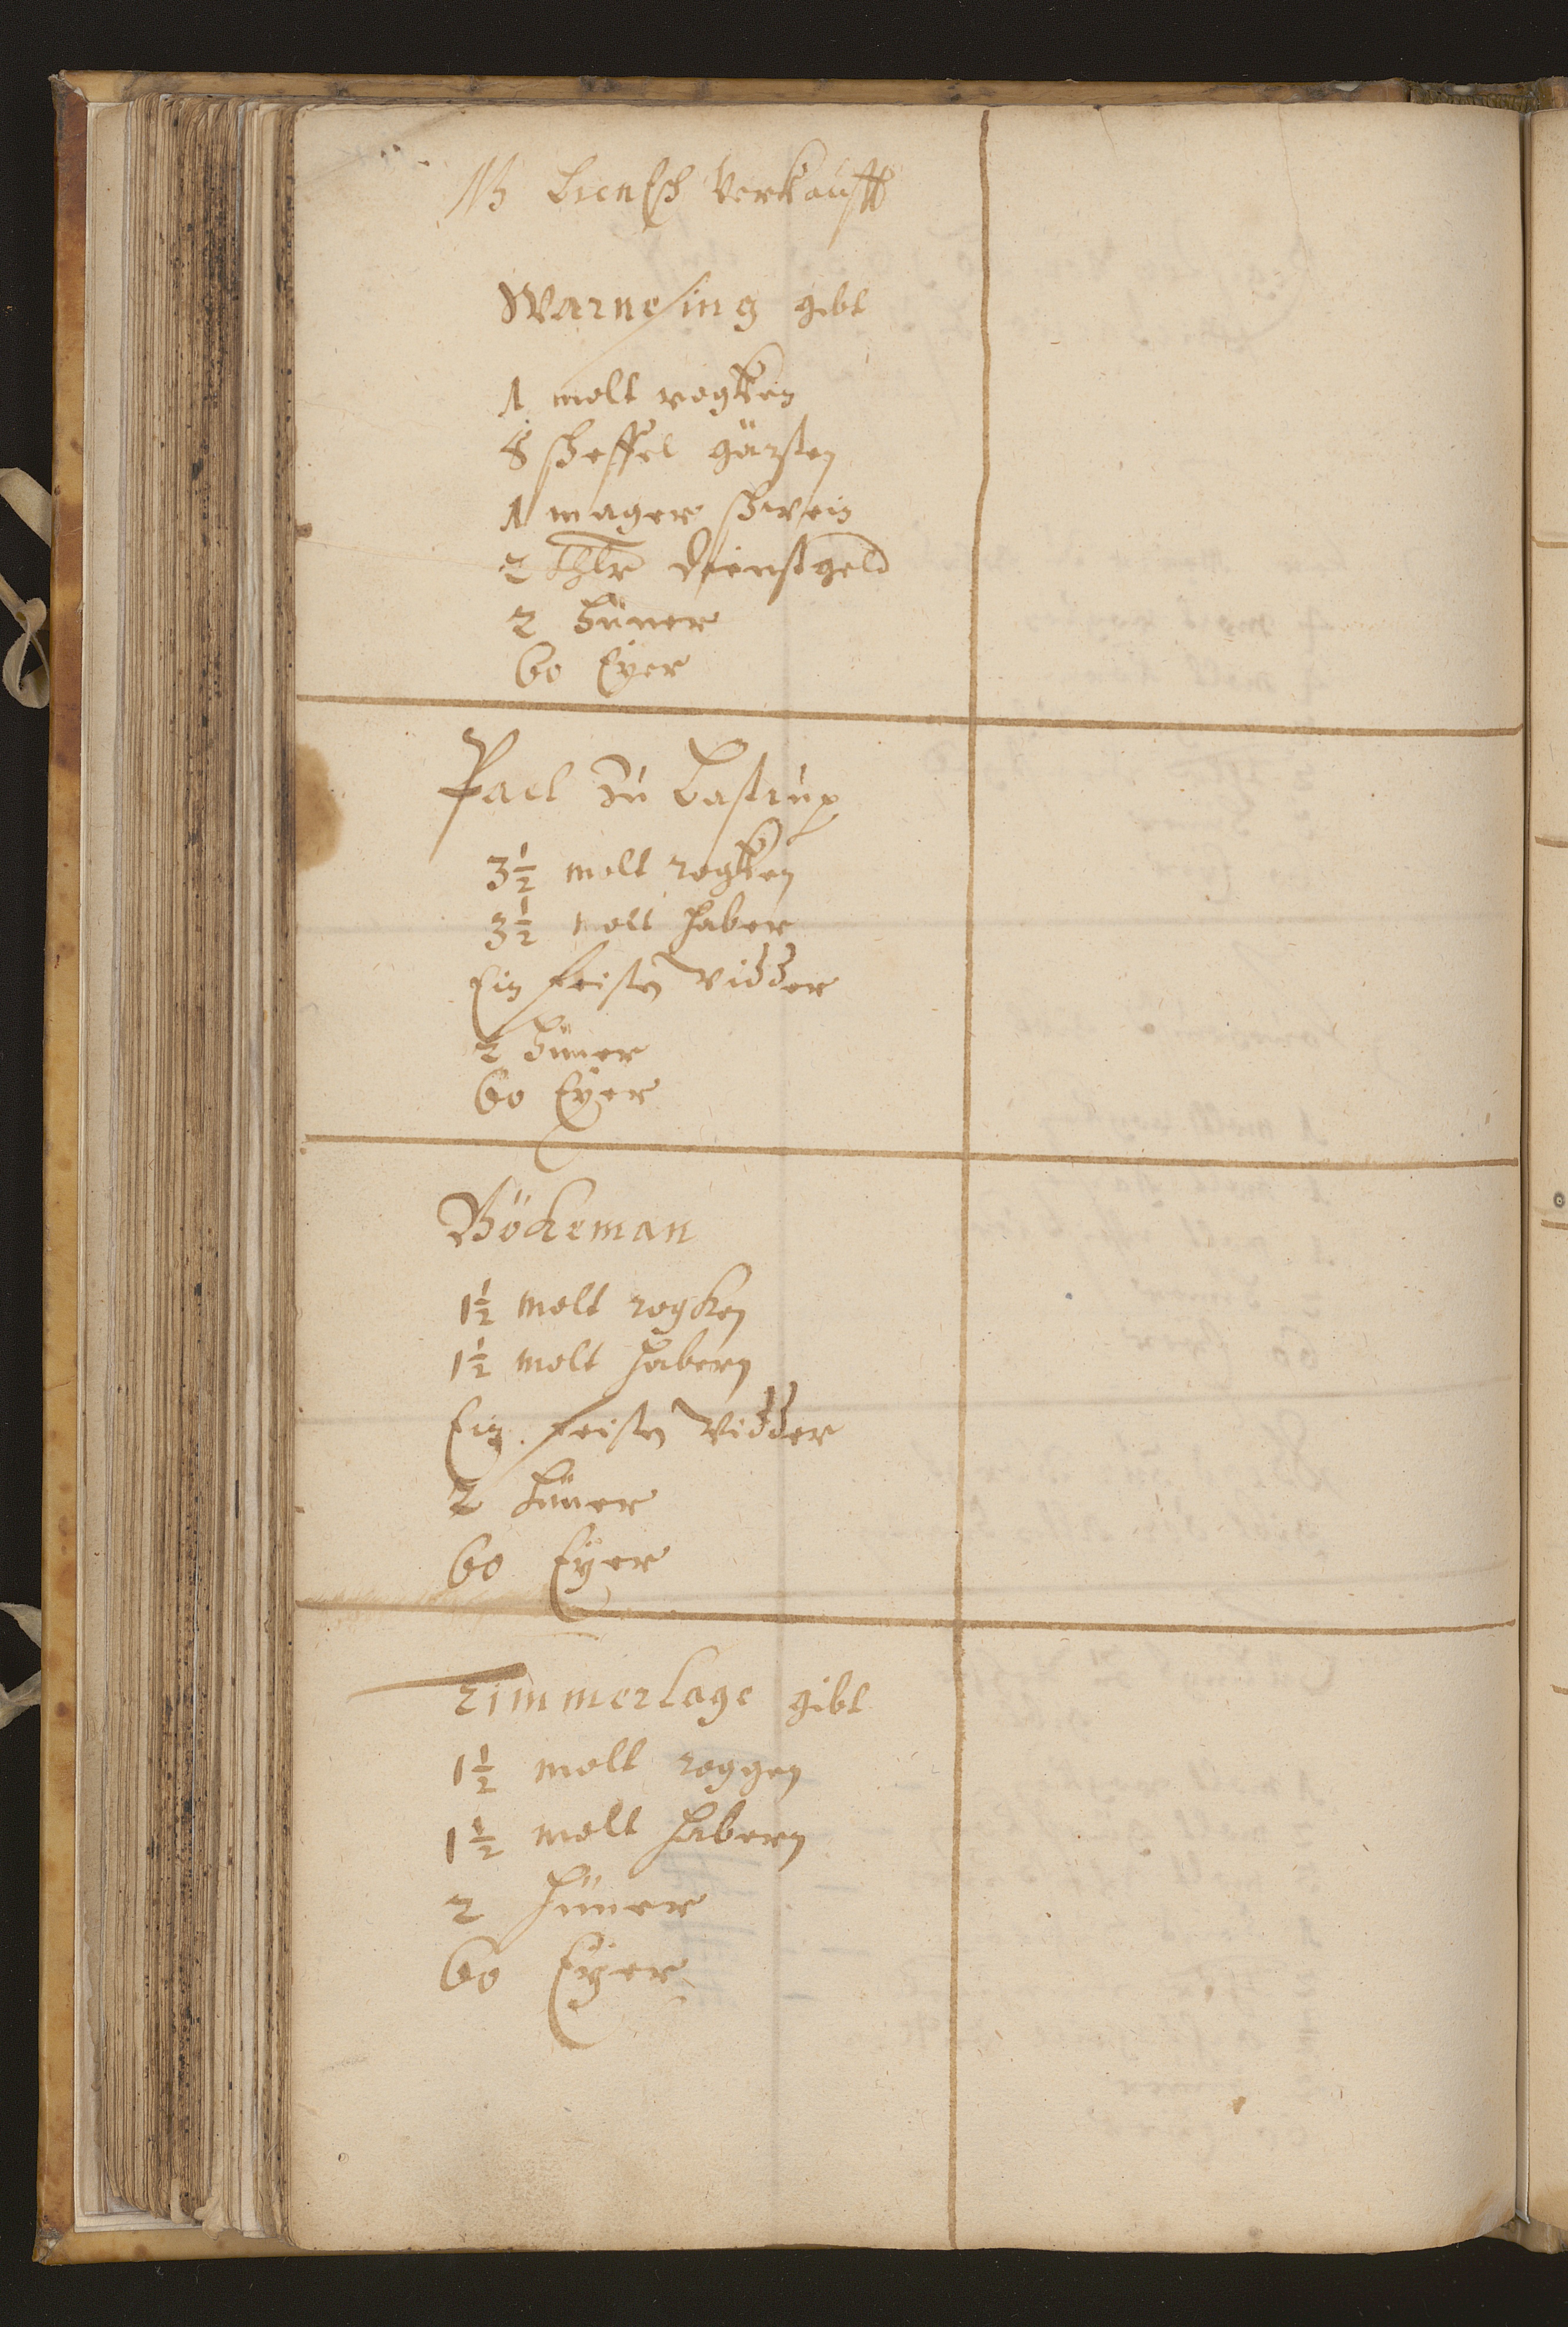 NB Lienesch verkaufft
Warnesing gibt
1 molt rogken
8 scheffel gärsten
1 mager schwein
2 Thlr dienstgeld
2 Hüner
60 Eyer
Pael zu Lastrup
3½ molt rogken
3½ molt haber
Ein feisten widder
2 Hüner
60 Eyer
Böckeman
1½ molt rogken
1½ molt habern
Ein feisten widder
2 Hüner
60 Eyer
Timmerlage gibt
1½ molt roggen
1½ molt habern
2 Hüner
60 Eyer